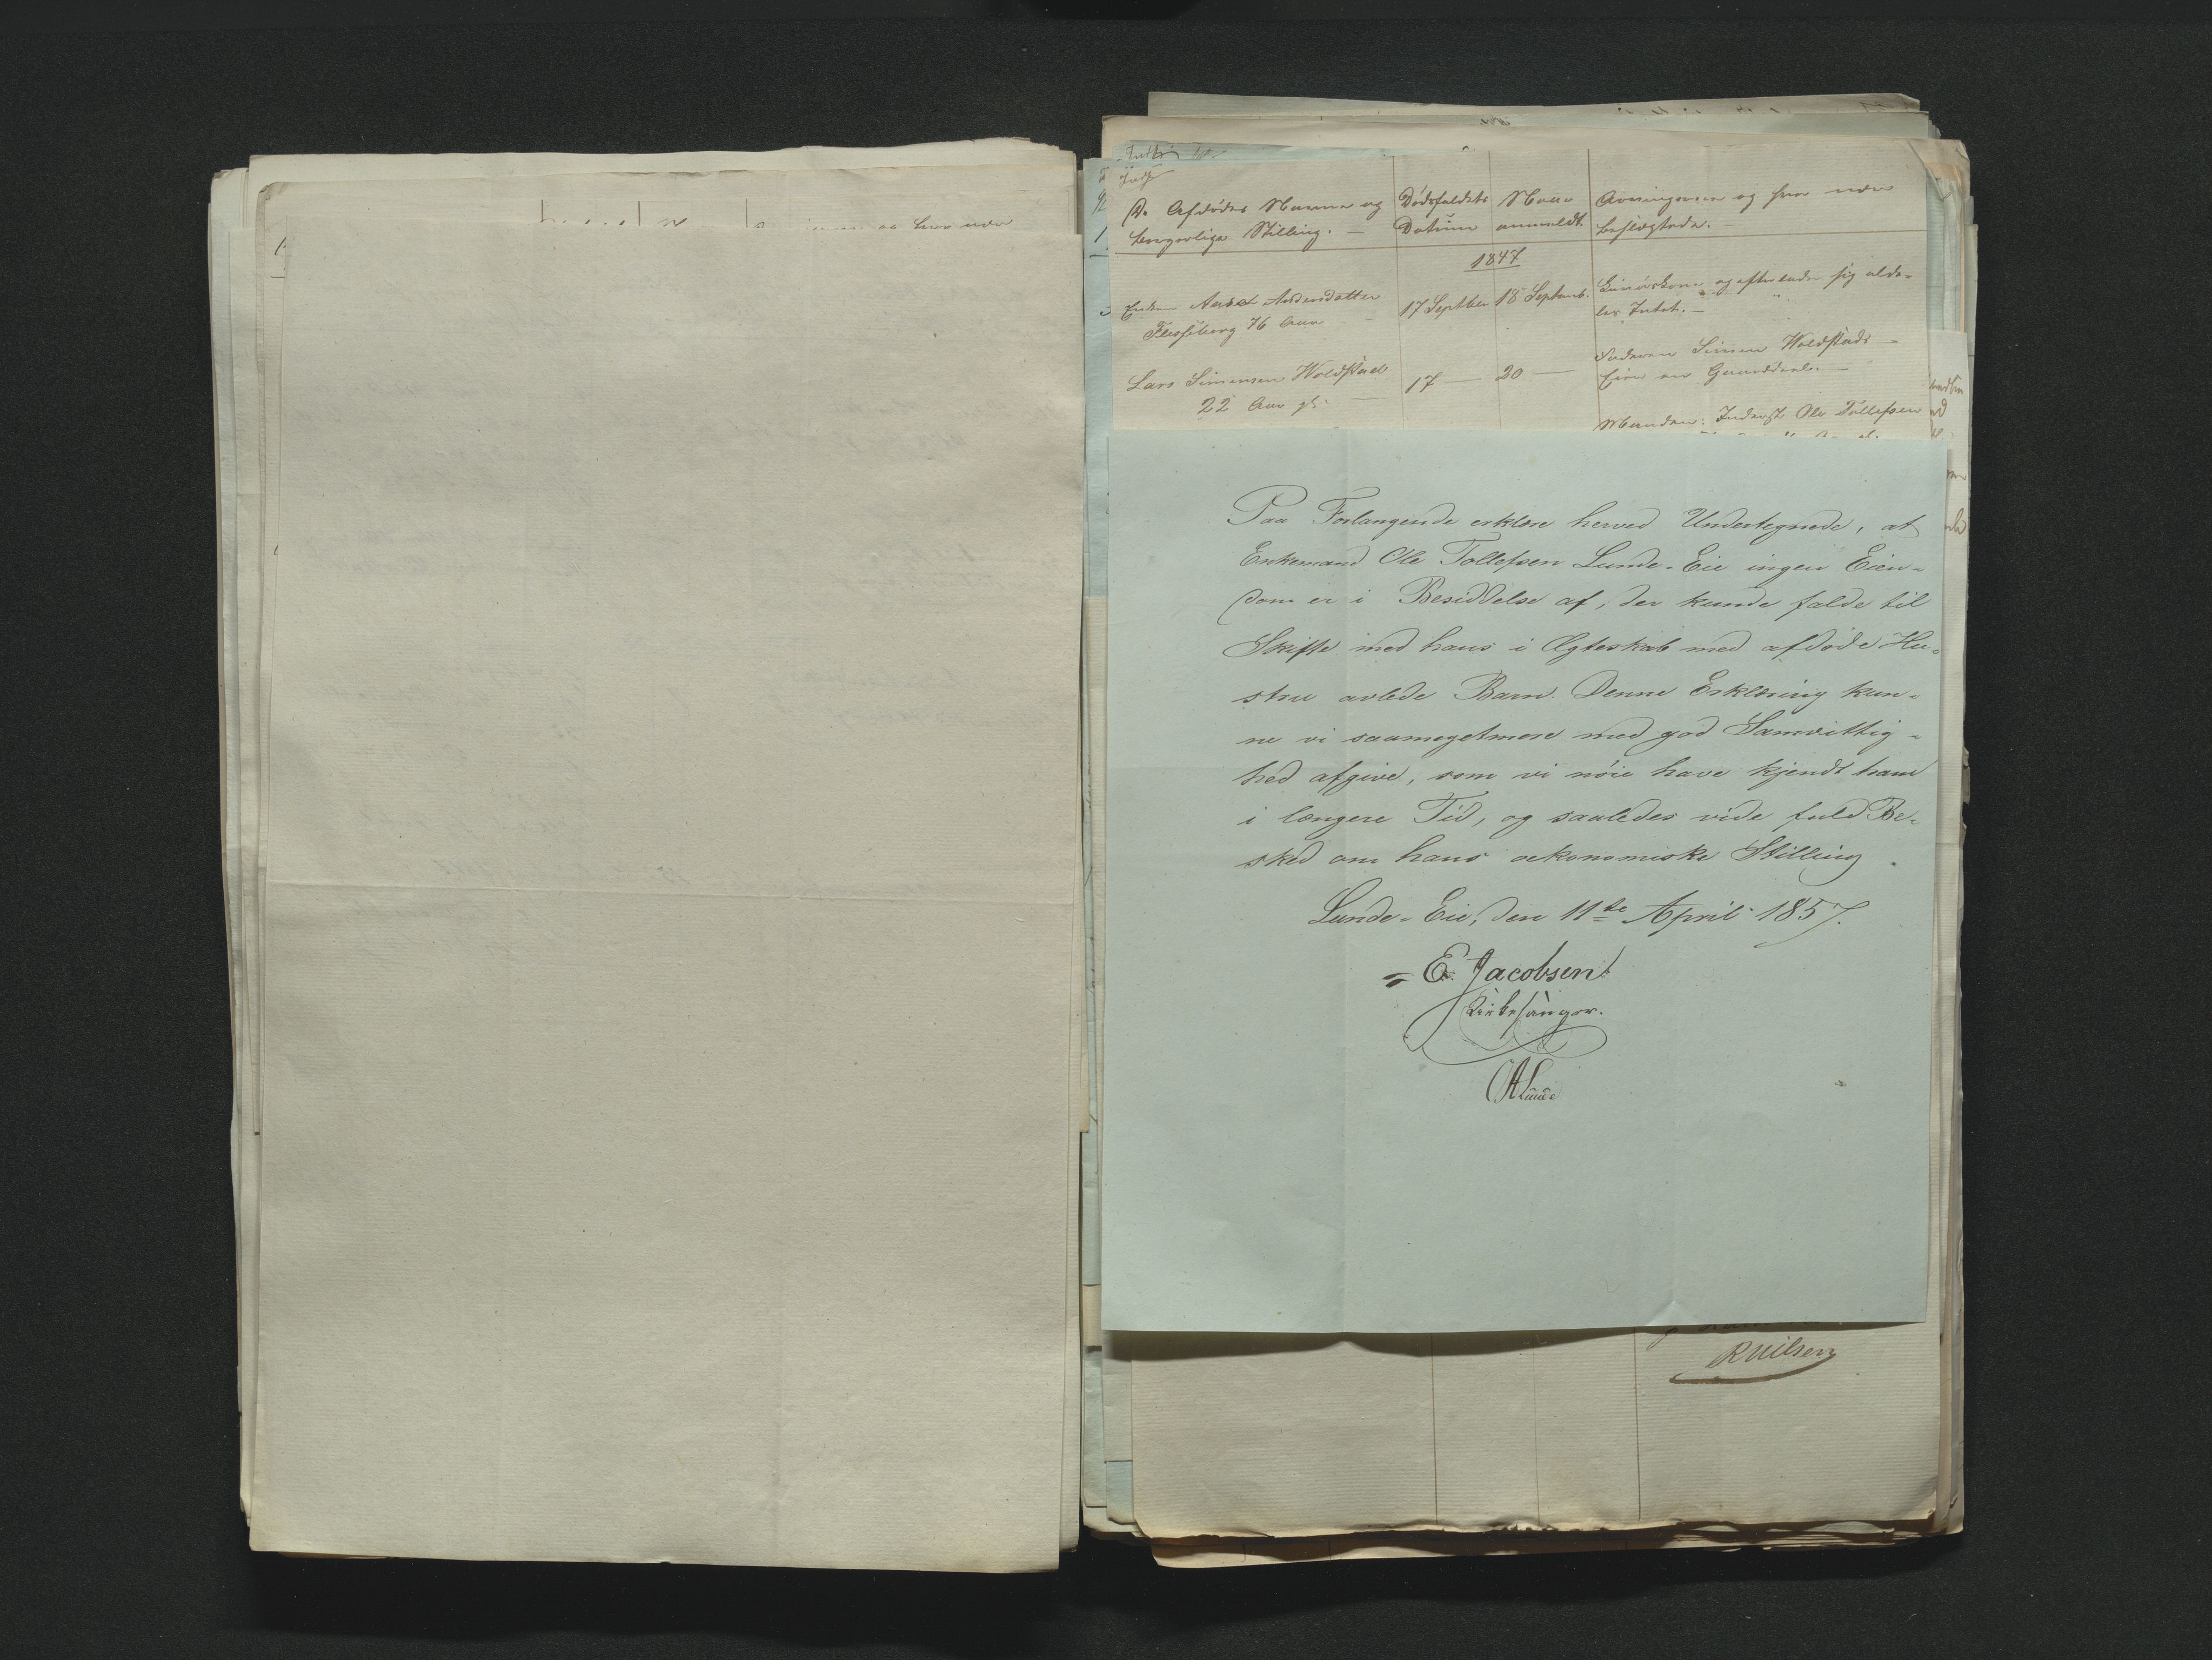 De Afdødes Navne og
borgerlige Stilling. —
Dødsfaldets
Datum
Naar
anmeldt.
Arvingerne og hvor nær
beslægtede. —
1847
Enke Aaset Andersdatter
Flesseberg 76 Aar —
17 Septbr
18 Septemb.
og efterlader sig alde-
les Intet. —
Lars Simensen Woldstad
22 Aar gl. —
17 —
20 —
Faderen Simen Woldstads-
Eie
Manden: Inderst Ole Tollefsen
Paa Forlangende erklære herved Undertegnede, at
Enkemand Ole Tollefsen Lunde-Eie ingen Eien-
dom er i Besiddelse af, der kunde falde til
Skifte med hans i Ægteskab med afdøde Hu-
stru avlede Barn. Denne Erklæring kun-
ne vi saameget mere med god Samvittig-
hed afgive, som vi nøie have kjendt ham
i længere Tid, og saaledes vide fuld Be-
sked om hans oekonomiske Stilling.
Lunde-Eie, den 11te April 1857.
E. Jacobsen
Kirkesanger.
A Lunde
R Nilsen